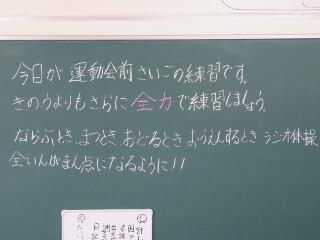 今日が運動会前さいごの練習です。
きのうよりもさらに全力で練習しましょう。
ならぶとき、まつとき、おどるとき、おうえんするとき、ラジオ体操
全いんがまん点になるように!!